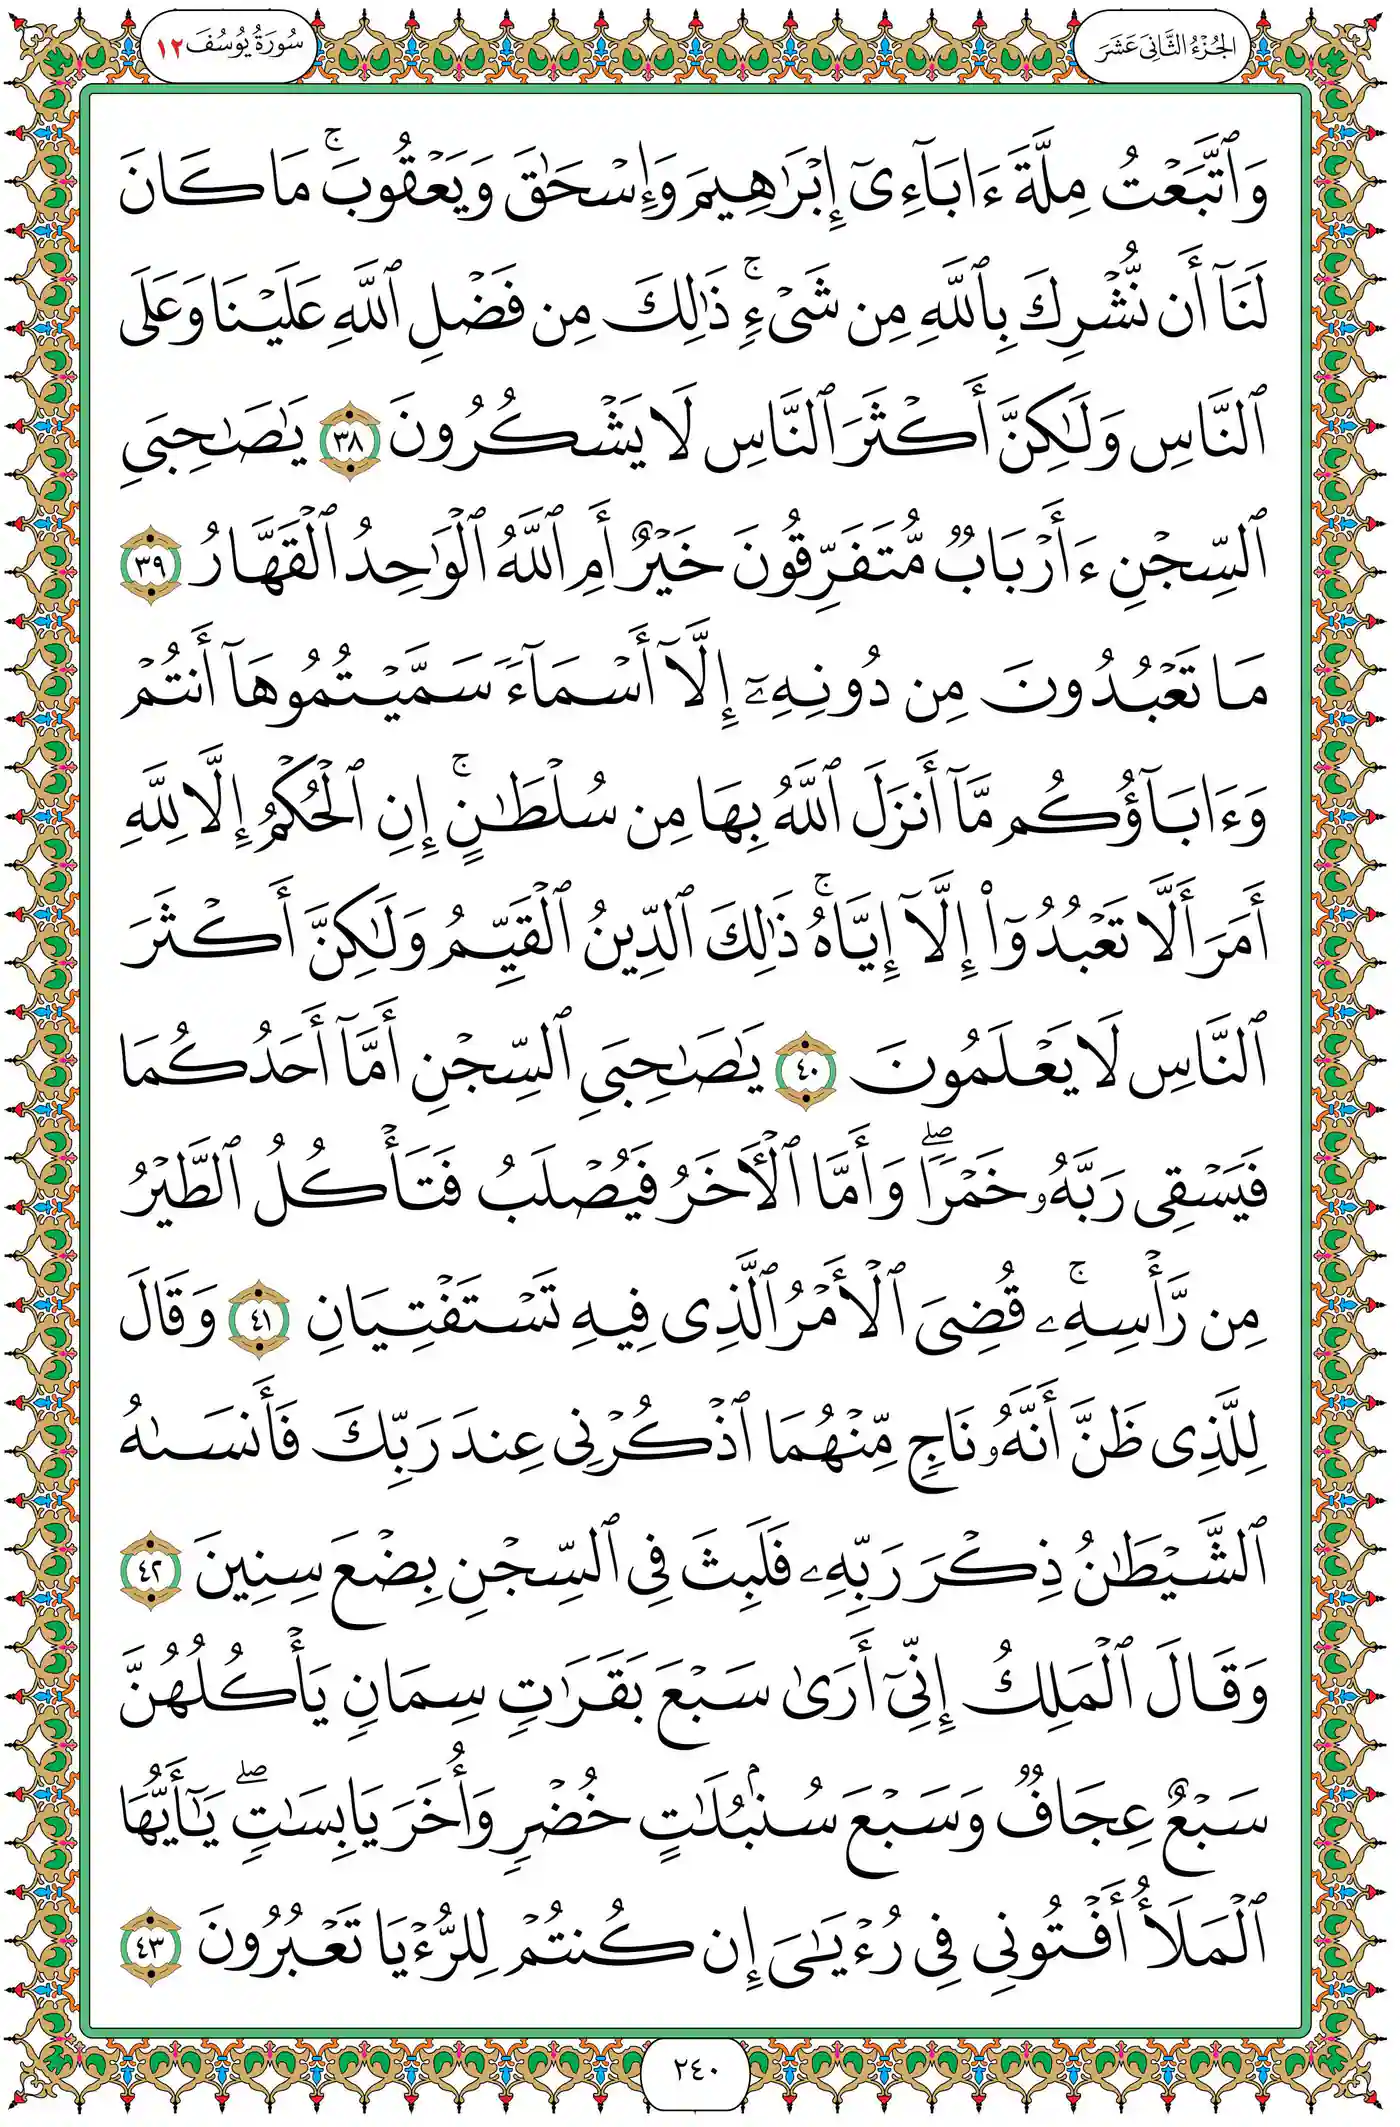 الجُزْءُ الثَّانِيَ عَشَرَ
سُورَةُ يُوسُفَ ١٢
وَٱتَّبَعْتُ مِلَّةَ ءَابَآءِىٓ إِبْرَٰهِيمَ وَإِسْحَٰقَ وَيَعْقُوبَ ۚ مَا كَانَ
لَنَآ أَن نُّشْرِكَ بِٱللَّهِ مِن شَىْءٍ ۚ ذَٰلِكَ مِن فَضْلِ ٱللَّهِ عَلَيْنَا وَعَلَى
ٱلنَّاسِ وَلَٰكِنَّ أَكْثَرَ ٱلنَّاسِ لَا يَشْكُرُونَ ٣٨ يَٰصَٰحِبَىِ
ٱلسِّجْنِ ءَأَرْبَابٌ مُّتَفَرِّقُونَ خَيْرٌ أَمِ ٱللَّهُ ٱلْوَٰحِدُ ٱلْقَهَّارُ ٣٩
مَا تَعْبُدُونَ مِن دُونِهِۦٓ إِلَّآ أَسْمَآءً سَمَّيْتُمُوهَآ أَنتُمْ
وَءَابَآؤُكُم مَّآ أَنزَلَ ٱللَّهُ بِهَا مِن سُلْطَٰنٍ ۚ إِنِ ٱلْحُكْمُ إِلَّا لِلَّهِ
أَمَرَ أَلَّا تَعْبُدُوٓا۟ إِلَّآ إِيَّاهُ ۚ ذَٰلِكَ ٱلدِّينُ ٱلْقَيِّمُ وَلَٰكِنَّ أَكْثَرَ
ٱلنَّاسِ لَا يَعْلَمُونَ ٤٠ يَٰصَٰحِبَىِ ٱلسِّجْنِ أَمَّآ أَحَدُكُمَا
فَيَسْقِى رَبَّهُۥ خَمْرًا ۖ وَأَمَّا ٱلْأَخَرُ فَيُصْلَبُ فَتَأْكُلُ ٱلطَّيْرُ
مِن رَّأْسِهِۦ ۚ قُضِىَ ٱلْأَمْرُ ٱلَّذِى فِيهِ تَسْتَفْتِيَانِ ٤١ وَقَالَ
لِلَّذِى ظَنَّ أَنَّهُۥ نَاجٍ مِّنْهُمَا ٱذْكُرْنِى عِندَ رَبِّكَ فَأَنسَىٰهُ
ٱلشَّيْطَٰنُ ذِكْرَ رَبِّهِۦ فَلَبِثَ فِى ٱلسِّجْنِ بِضْعَ سِنِينَ ٤٢
وَقَالَ ٱلْمَلِكُ إِنِّىٓ أَرَىٰ سَبْعَ بَقَرَٰتٍ سِمَانٍ يَأْكُلُهُنَّ
سَبْعٌ عِجَافٌ وَسَبْعَ سُنۢبُلَٰتٍ خُضْرٍ وَأُخَرَ يَابِسَٰتٍ ۖ يَٰٓأَيُّهَا
ٱلْمَلَأُ أَفْتُونِى فِى رُءْيَٰىَ إِن كُنتُمْ لِلرُّءْيَا تَعْبُرُونَ ٤٣
٢٤٠